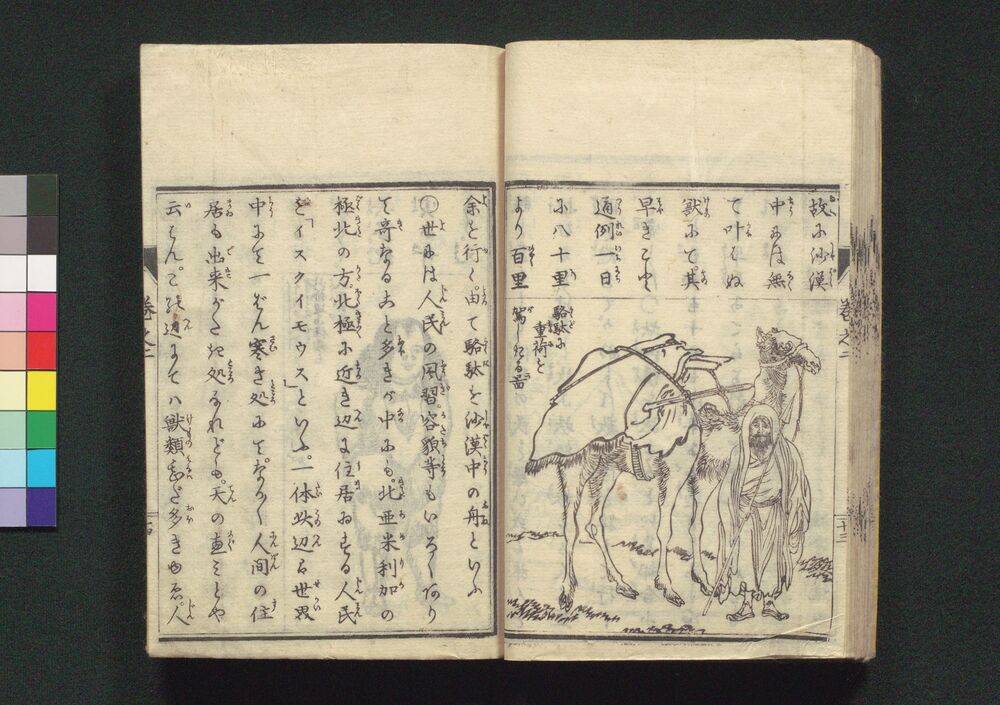 故に沙漠
中には無
て叶はぬ
獣にて其
早きこと
通例一日
に八十里
より百里
駱駝に
重荷を
駕したる図
余を行く由て駱駝を沙漠中の舟といふ
○世には人民の風習容貌等もいろ〳〵あり
て奇なること多きが中にも北亜米利加の
極北の方北極に近き辺に住居ゐする人民
を「イスタイモウス」といふ一体此辺は世界
中にて一ばん寒き処にてなか〳〵人間の住
居も出来がたき処なれども天の恵ミとや
云はんこの辺にてハ獣類甚だ多きゆゑ人
巻之二
巻之二
十三